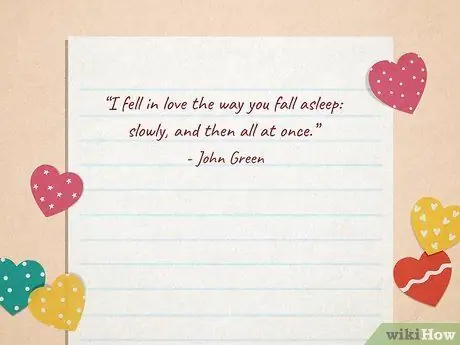 “I fell in love the way you fall asleep:
slowly, and then all at once.”
- John Green
wikiHow